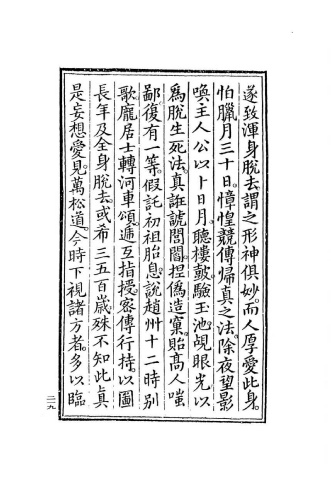 遂致渾身脫去謂之形神俱妙。而人厚愛此身。
怕臘月三十日。慞惶競傳歸真之法。除夜望影
喚主人公以卜日月。聽樓鼓。驗玉池。覘眼光。以
為脫生死法。真誑諕閭閻。揑偽造窠。貽高人嗤
鄙。復有一等。假託初祖胎息。說趙州十二時別
歌。龐居士轉河車頌。遞互指授。密傳行持。以圖
長年及全身脫去。或希三五百歲。殊不知此真
是妄想愛見。萬松道。今時下視諸方者。多以臨
二一九